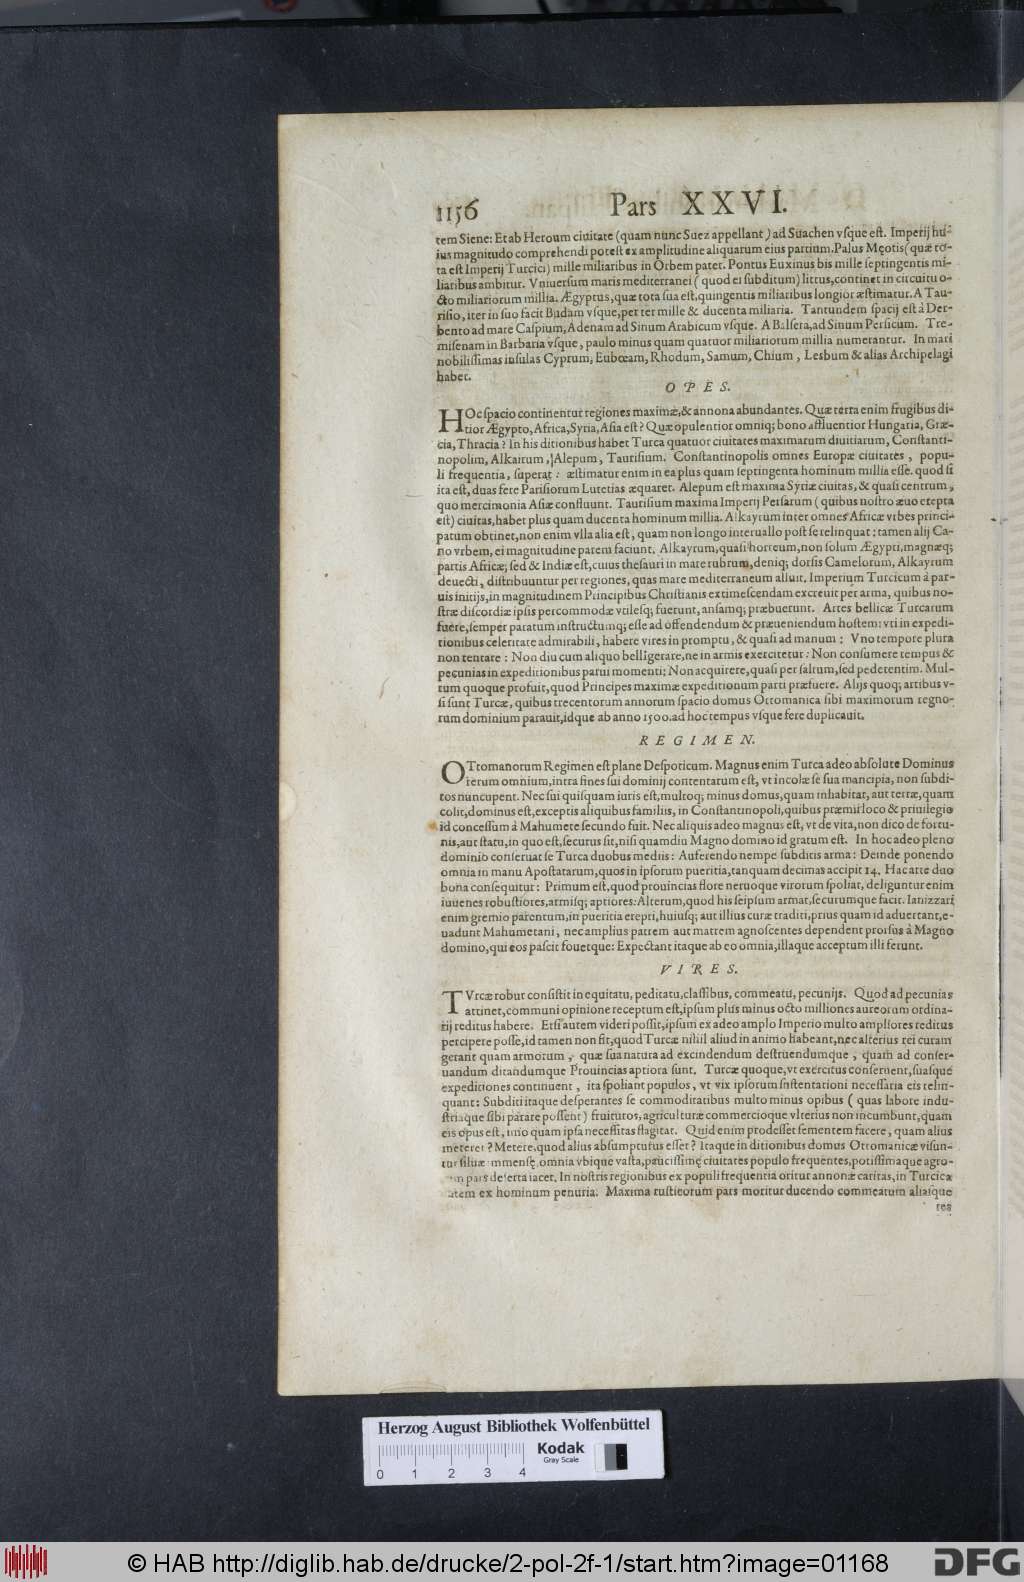 1156 Pars XXVI.
tem Siene: Et ab Heroum ciuitate (quam nunc Suez appellant) ad Suachen vſque eſt. Imperij hu-
ius magnitudo comprehendi poteſt ex amplitudine aliquarum eius partium. Palus Męotis (quæ to-
ta eſt Imperij Turcici) mille miliaribus in Orbem patet. Pontus Euxinus bis mille ſeptingentis mi-
liaribus ambitur. Vniuerſum maris mediterranei (quod ei ſubditum) littus, continet in circuitu o-
cto miliariorum millia. Ægyptus, quæ tota ſua eſt, quingentis miliaribus longior æſtimatur. A Tau-
riſio, iter in ſuo facit Budam vſque, per ter mille & ducenta miliaria. Tantundem ſpacij eſt à Der-
bento ad mare Caſpium, Adenam ad Sinum Arabicum vſque. A Balſera, ad Sinum Perſicum. Tre-
miſenam in Barbaria vſque, paulo minus quam quatuor miliariorum millia numerantur. In mari
nobiliſſimas inſulas Cyprum, Eubœam, Rhodum, Samum, Chium, Lesbum & alias Archipelagi
habet.
OPES.
HOc ſpacio continentur regiones maximæ, & annona abundantes. Quæ terra enim frugibus di-
tior Ægypto, Africa, Syria, Aſia eſt? Quæ opulentior omniq; bono affluentior Hungaria, Græ-
cia, Thracia? In his ditionibus habet Turca quatuor ciuitates maximarum diuitiarum, Conſtanti-
nopolim, Alkairum, Alepum, Tauriſium. Conſtantinopolis omnes Europæ ciuitates, popu-
li frequentia, ſuperat: æſtimatur enim in ea plus quam ſeptingenta hominum millia eſſe. quod ſi
ita eſt, duas fere Pariſiorum Lutetias æquaret. Alepum eſt maxima Syriæ ciuitas, & quaſi centrum,
quo mercimonia Aſiæ confluunt. Tauriſium maxima Imperij Perſarum (quibus noſtro æuo erepta
eſt) ciuitas, habet plus quam ducenta hominum millia. Alkayrum inter omnes Africæ vrbes princi-
patum obtinet, non enim vlla alia eſt, quam non longo interuallo poſt ſe relinquat: tamen alij Ca-
no vrbem, ei magnitudine parem faciunt. Alkayrum, quaſi horreum, non ſolum Ægypti, magnæq;
partis Africæ; ſed & Indiæ eſt, cuius theſauri in mare rubrum, deniq; dorſis Camelorum, Alkayrum
deuecti, diſtribuuntur per regiones, quas mare mediterraneum alluit. Imperium Turcicum à par-
uis initijs, in magnitudinem Principibus Chriſtianis extimeſcendam excreuit per arma, quibus no-
ſtræ diſcordiæ ipſis percommodæ vtilesq; fuerunt, anſamq; præbuerunt. Artes bellicæ Turcarum
fuere, ſemper paratum inſtructumq; eſſe ad offendendum & præueniendum hoſtem: vti in expedi-
tionibus celeritate admirabili, habere vires in promptu, & quaſi ad manum: Vno tempore plura
non tentare: Non diu cum aliquo belligerare, ne in armis exercitetur: Non conſumere tempus &
pecunias in expeditionibus parui momenti; Non acquirere, quaſi per ſaltum, ſed pedetentim. Mul-
tum quoque profuit, quod Principes maximæ expeditionum parti præfuere. Alijs quoq; artibus v-
ſi ſunt Turcæ, quibus trecentorum annorum ſpacio domus Ottomanica ſibi maximorum regno-
rum dominium parauit, idque ab anno 1500. ad hoc tempus vſque fere duplicauit.
REGIMEN.
OTtomanorum Regimen eſt plane Deſpoticum. Magnus enim Turca adeo abſolute Dominus
rerum omnium, intra fines ſui dominij contentarum eſt, vt incolæ ſe ſua mancipia, non ſubdi-
tos nuncupent. Nec ſui quiſquam iuris eſt, multoq; minus domus, quam inhabitat, aut terræ, quam
colit, dominus eſt, exceptis aliquibus familiis, in Conſtantinopoli, quibus præmii loco & priuilegio
id conceſſum à Mahumete ſecundo fuit. Nec aliquis adeo magnus eſt, vt de vita, non dico de fortu-
nis, aut ſtatu, in quo eſt, ſecurus ſit, niſi quamdiu Magno domino id gratum eſt. In hoc adeo pleno
dominio conſeruat ſe Turca duobus mediis: Auferendo nempe ſubditis arma: Deinde ponendo
omnia in manu Apoſtatarum, quos in ipſorum pueritia, tanquam decimas accipit 14. Hac arte duo
bona conſequitur: Primum eſt, quod prouincias flore neruoque virorum ſpoliat, deliguntur enim
iuuenes robuſtiores, armiſq; aptiores: Alterum, quod his ſeipſum armat, ſecurumque facit. Ianizzari
enim gremio parentum, in pueritia erepti, huiusq; aut illius curæ traditi, prius quam id aduertant, e-
uadunt Mahumetani, nec amplius patrem aut matrem agnoſcentes dependent prorſus à Magno
domino, qui eos paſcit fouetque: Expectant itaque ab eo omnia, illaque acceptum illi ferunt.
VIRES.
TVrcæ robur conſiſtit in equitatu, peditatu, claſſibus, commeatu, pecunijs. Quod ad pecunias
attinet, communi opinione receptum eſt, ipſum plus minus octo milliones aureorum ordina-
rij reditus habere. Etſi autem videri poſſit, ipſum ex adeo amplo Imperio multo ampliores reditus
percipere poſſe, id tamen non fit, quod Turcæ nihil aliud in animo habeant, nec alterius rei curam
gerant quam armorum, quæ ſua natura ad excindendum deſtruendumque, quam ad conſer-
uandum ditandumque Prouincias aptiora ſunt. Turcæ quoque, vt exercitus conſeruent, ſuaſque
expeditiones continuent, ita ſpoliant populos, vt vix ipſorum ſuſtentationi neceſſaria eis relin-
quant: Subditi itaque deſperantes ſe commoditatibus multo minus opibus (quas labore indu-
ſtriaque ſibi parare poſſent) fruituros, agriculturæ commercioque vlterius non incumbunt, quam
eis opus eſt, imo quam ipſa neceſſitas flagitat. Quid enim prodeſſet ſementem facere, quam alius
meteret? Metere, quod alius abſumpturus eſſet? Itaque in ditionibus domus Ottomanicæ viſun-
tur ſiluæ immenſę, omnia vbique vaſta, pauciſſimę ciuitates populo frequentes, potiſſimaque agro-
rum pars deſerta iacet. In noſtris regionibus ex populi frequentia oritur annonæ caritas, in Turcica
autem ex hominum penuria. Maxima ruſticorum pars moritur ducendo commeatum aliaſque
res
Herzog August Bibliothek Wolfenbüttel
Kodak
Gray Scale
0 1 2 3 4
© HAB http://diglib.hab.de/drucke/2-pol-2f-1/start.htm?image=01168
DFG